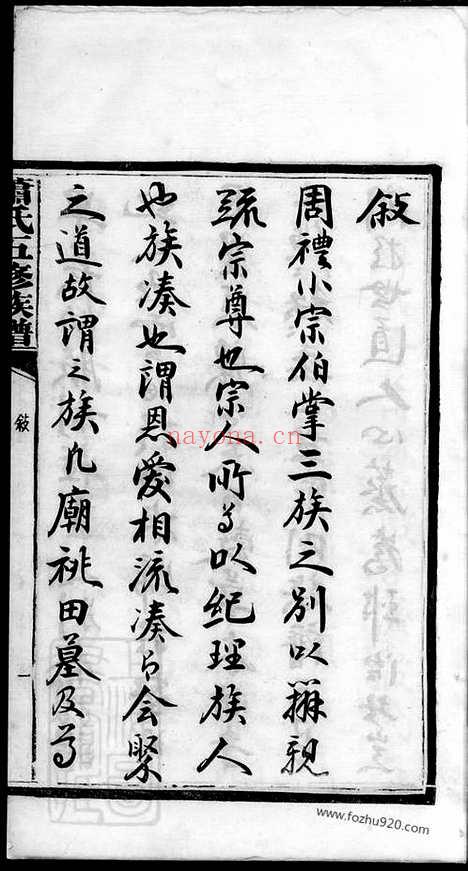 敘
周禮小宗伯掌三族之別以辨親
疏宗尊也宗人所为以紀理族人
也族凑也謂恩愛相流凑为会聚
之道故謂之族凡廟祧田墓及为
蕭氏五修族譜
敘
一
nayona.cn
www.fozhu920.com